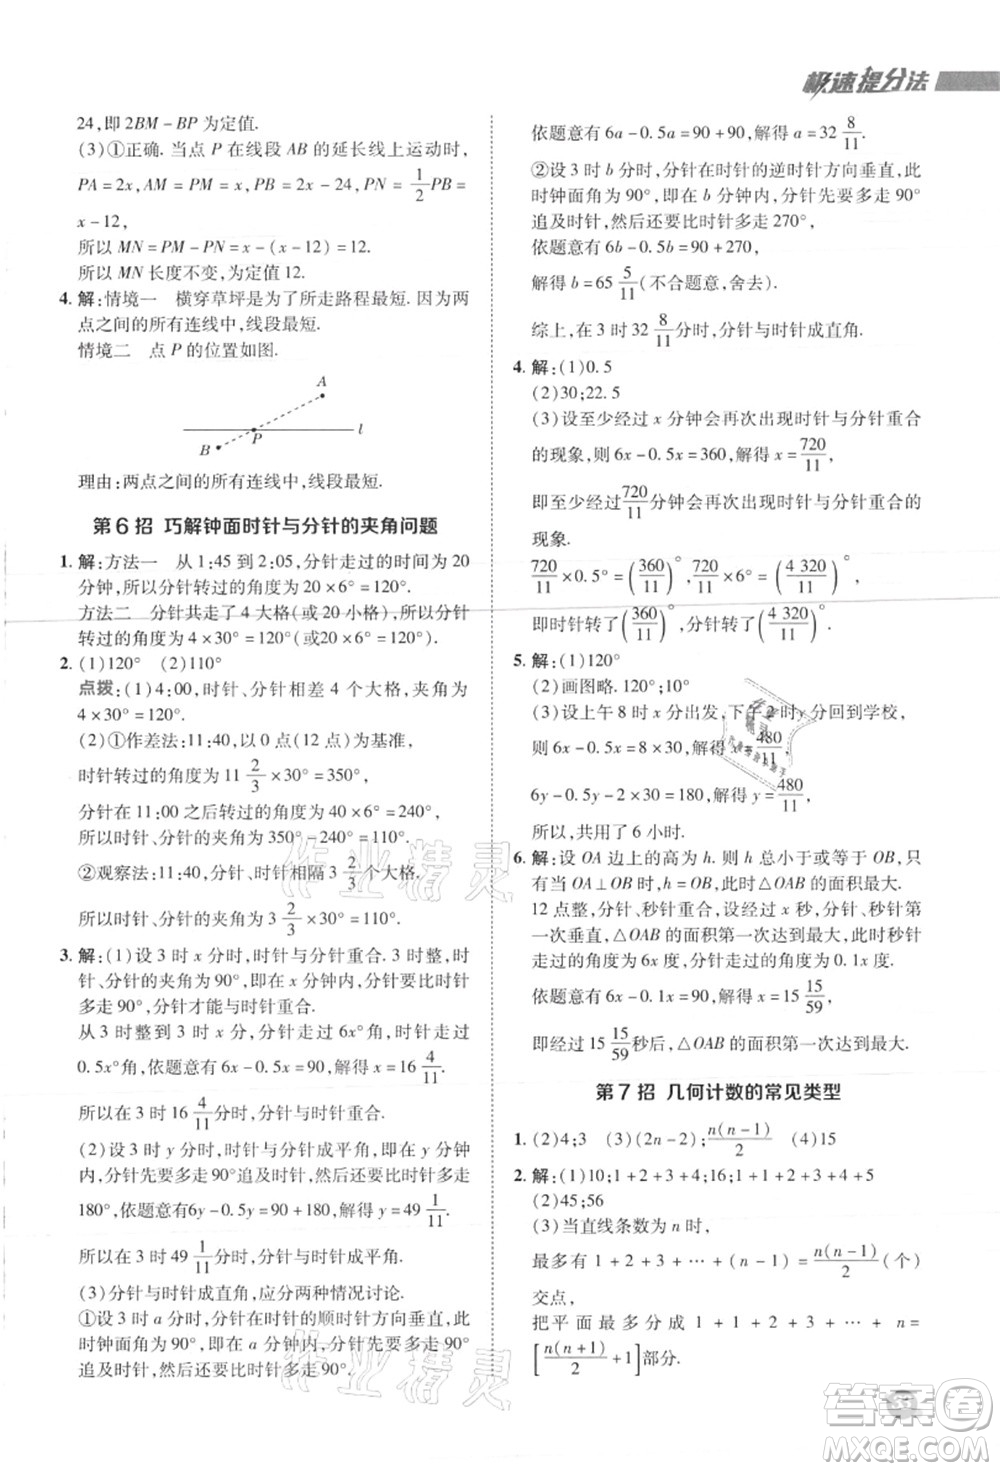 极速提分法
24,即 2BM－BP 为定值.
(3)①正确. 当点 P 在线段 AB 的延长线上运动时,
PA＝2x,AM＝PM＝x,PB＝2x－24,PN＝1/2PB＝
x－12,
所以 MN＝PM－PN＝x－(x－12)＝12.
所以 MN 长度不变,为定值 12.
4. 解:情境一　横穿草坪是为了所走路程最短. 因为两
点之间的所有连线中,线段最短.
情境二　点 P 的位置如图.
A
P
l
B
理由:两点之间的所有连线中,线段最短.
第 6 招　巧解钟面时针与分针的夹角问题
1. 解:方法一　从 1:45 到 2:05,分针走过的时间为 20
分钟,所以分针转过的角度为 20×6°＝120°.
方法二　分针共走了 4 大格(或 20 小格),所以分针
转过的角度为 4×30°＝120°(或20×6°＝120°).
2. (1)120°　(2)110°
点拨:(1)4:00,时针、分针相差 4 个大格,夹角为
4×30°＝120°.
(2)①作差法:11:40,以 0 点(12点)为基准,
时针转过的角度为 11 2/3×30°＝350°,
分针在 11:00 之后转过的角度为 40×6°＝240°,
所以时针、分针的夹角为 350°－240°＝110°.
②观察法:11:40,分针、时针相隔 3 2/3 个大格.
所以时针、分针的夹角为 3 2/3×30°＝110°.
3. 解:(1)设 3 时 x 分时,时针与分针重合. 3 时整,时
针、分针的夹角为 90°,即在 x 分钟内,分针要比时针
多走 90°,分针才能与时针重合.
从 3 时整到 3 时 x 分,分针走过 6x°角,时针走过
0.5x°角,依题意有 6x－0.5x＝90,解得 x＝16 4/11.
所以在 3 时 16 4/11分时,分针与时针重合.
(2)设 3 时 y 分时,时针与分针成平角,即在 y 分钟
内,分针先要多走 90°追及时针,然后还要比时针多走
180°,依题意有6y－0.5y＝90＋180,解得 y＝49 1/11.
所以在 3 时 49 1/11分时,分针与时针成平角.
(3)分针与时针成直角,应分两种情况讨论.
①设 3 时 a 分时,分针在时针的顺时针方向垂直,此
时钟面角为 90°,即在 a 分钟内,分针先要多走 90°
追及时针,然后还要比时针多走 90°.
依题意有 6a－0.5a＝90＋90,解得 a＝32 8/11.
②设 3 时 b 分时,分针在时针的逆时针方向垂直,此
时钟面角为 90°,即在 b 分钟内,分针先要多走 90°
追及时针,然后还要比时针多走 270°,
依题意有 6b－0.5b＝90＋270,
解得 b＝65 5/11(不合题意,舍去).
综上,在 3 时 32 8/11分时,分针与时针成直角.
4. 解:(1)0.5
(2)30;22.5
(3)设至少经过 x 分钟会再次出现时针与分针重合
的现象,则 6x－0.5x＝360,解得 x＝720/11,
即至少经过720/11分钟会再次出现时针与分针重合的
现象.
720/11×0.5°＝(360/11)°,720/11×6°＝(4 320/11)°,
即时针转了(360/11)°,分针转了(4 320/11)°.
5. 解:(1)120°
(2)画图略. 120°;10°
(3)设上午 8 时 x 分出发,下午 2 时 y 分回到学校,
则 6x－0.5x＝8×30,解得 x＝480/11,
6y－0.5y＋2×30＝180,解得 y＝480/11,
所以,共用了 6 小时.
6. 解:设 OA 边上的高为 h. 则 h 总小于或等于 OB,只
有当 OA⊥OB 时,h＝OB,此时△OAB 的面积最大.
12 点整,分针、秒针重合,设经过 x 秒,分针、秒针第
一次垂直,△OAB 的面积第一次达到最大,此时秒针
走过的角度为 6x 度,分针走过的角度为 0.1x 度.
依题意有 6x－0.1x＝90,解得 x＝15 15/59,
即经过 15 15/59秒后,△OAB 的面积第一次达到最大.
第 7 招　几何计数的常见类型
1. (2)4;3　(3)(2n－2);n(n－1)/2　(4)15
2. 解:(1)10;1＋1＋2＋3＋4＋5
(2)45;56
(3)当直线条数为 n 时,
最多有 1＋2＋3＋…＋(n－1)＝n(n－1)/2(个)
交点,
把平面最多分成 1＋1＋2＋3＋…＋n＝
[n(n＋1)/2＋1]部分.
31
作业精灵
作业精灵
答案卷
MXQE.COM